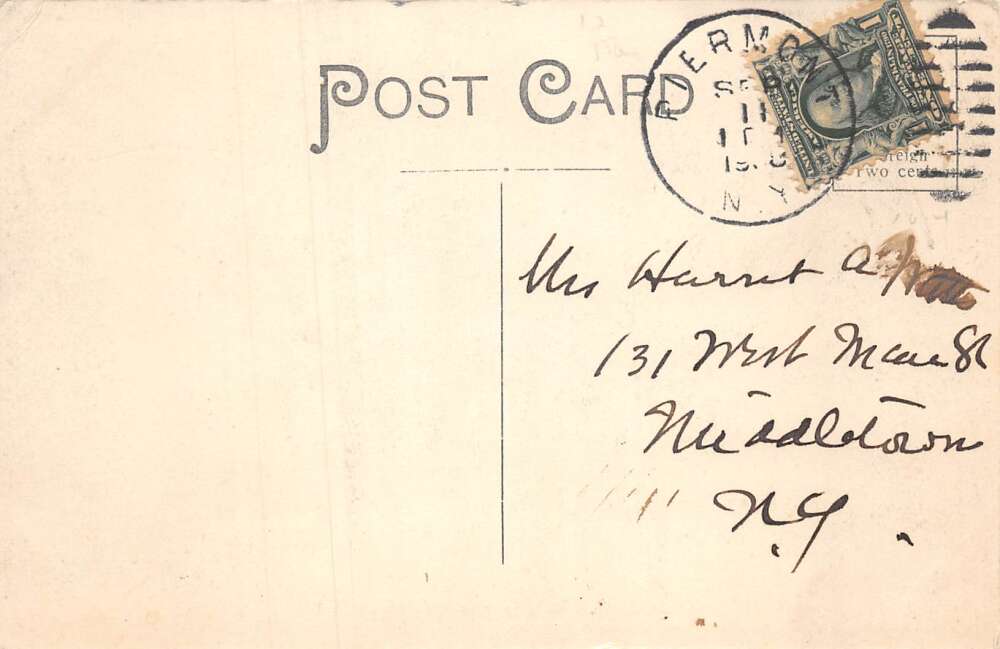 POST CARD
PIERMONT
SEP
11
N.Y.
Foreign
Two cents
Mrs Harriet A
131 West Main St
Middletown
N.Y.